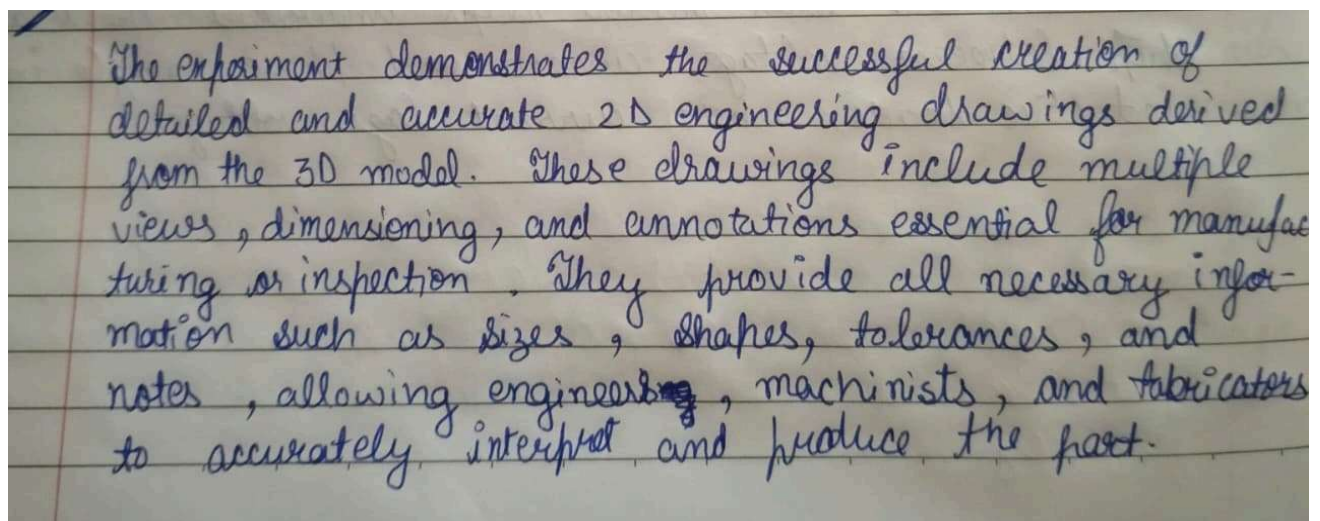 The experiment demonstrates the successful creation of
detailed and accurate 2D engineering drawings derived
from the 3D model. These drawings include multiple
views, dimensioning, and annotations essential for manufac
turing or inspection. They provide all necessary infor-
mation such as sizes, shapes, tolerances, and
notes, allowing engineers, machinists, and fabricators
to accurately interpret and produce the part.